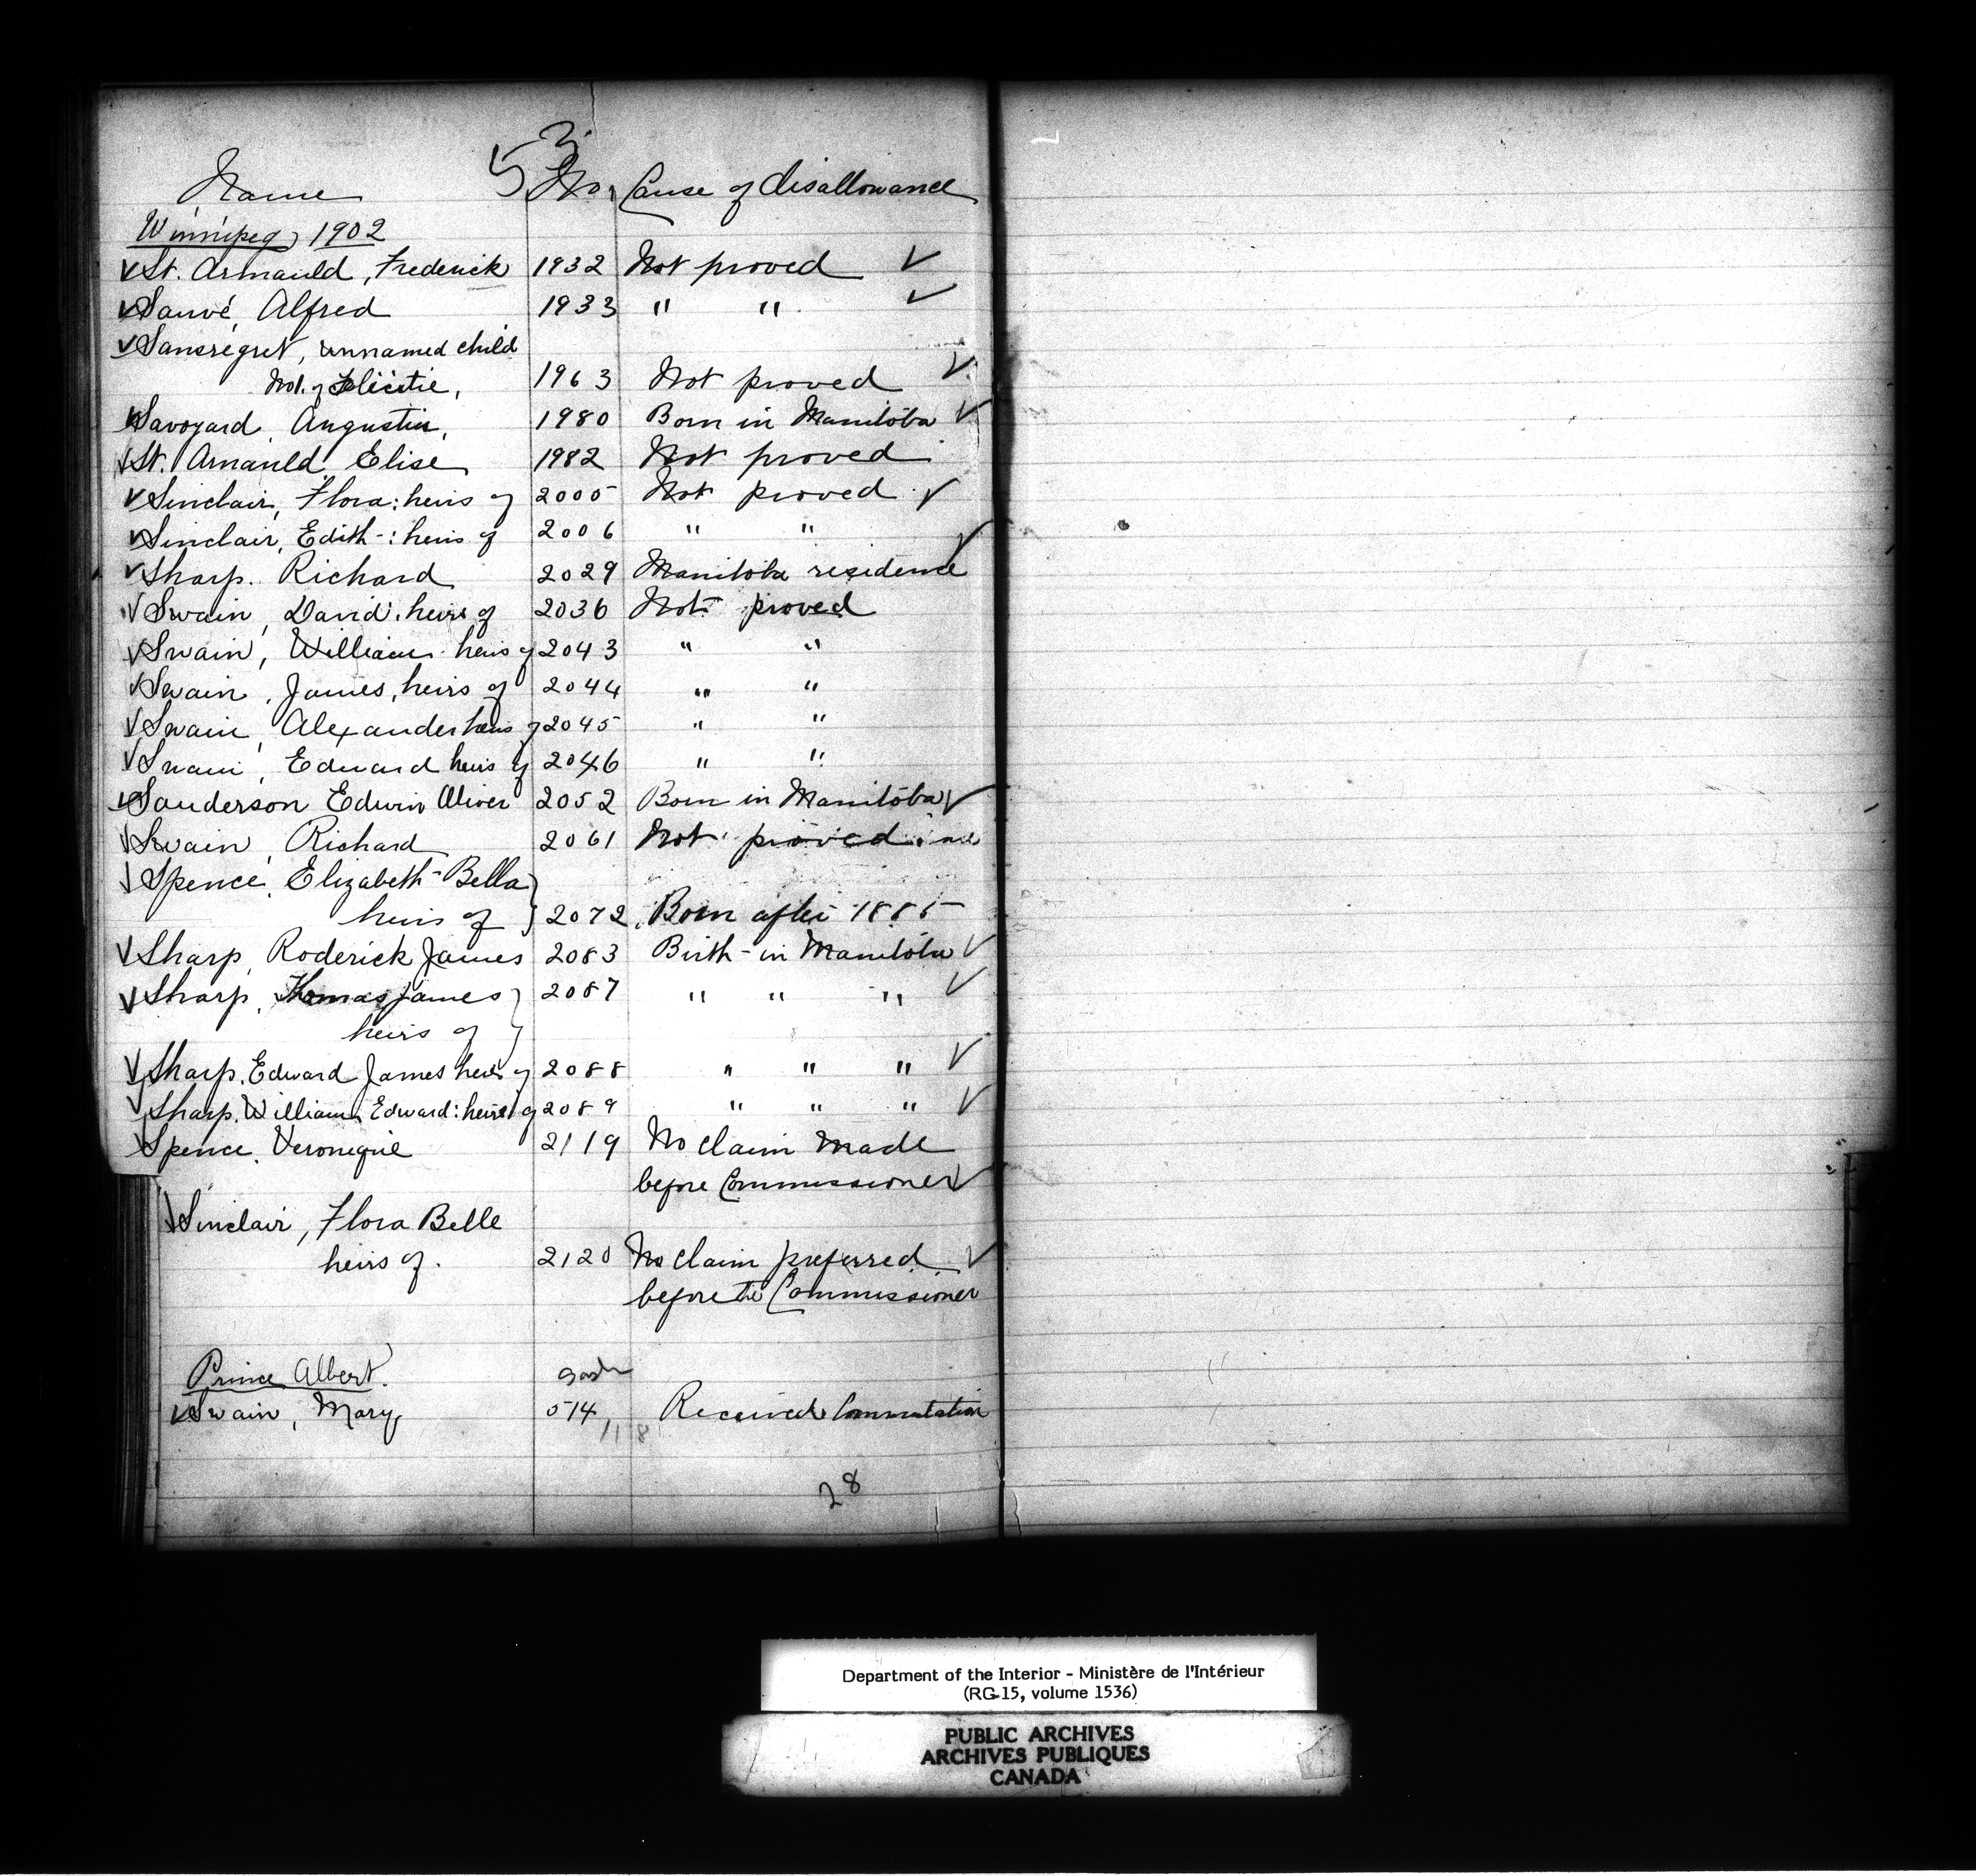 53
Name No. Cause of disallowance
Winnipeg, 1902
St. Armauld, Frederick 1932 Not proved
Sauvé, Alfred 1933 " "
Sansregret, unnamed child
of Felicitie, 1963 Not proved
Savoyard, Augustin, 1980 Born in Manitoba
St. Arnauld Elise 1982 Not proved
Sinclair, Flora: heirs of 2005 Not proved
Sinclair, Edith: heirs of 2006 " "
Sharp. Richard 2029 Manitoba residence
Swain, David. heirs of 2036 Not proved
Swain, William heirs of 2043 " "
Swain, James, heirs of 2044 " "
Swain, Alexander heirs of 2045 " "
Swain, Edward heirs of 2046 " "
Sanderson Edwin Oliver 2052 Born in Manitoba
Swain, Richard 2061 Not proved
Spence, Elizabeth-Bella
heirs of 2072 Born after 1885
Sharp, Roderick James 2083 Birth in Manitoba
Sharp, Thomas James 2087 " " "
heirs of
Sharp. Edward James heirs of 2088 " " "
Sharp. William Edward: heirs of 2089 " " "
Spence. Veronique 2119 No claim made
before Commissioner
Sinclair, Flora Belle
heirs of. 2120 No claim preferred
before the Commissioner
Prince Albert.
Swain, Mary 514 Received Commutation
118
28
Department of the Interior - Ministère de l'Intérieur
(RG-15, volume 1536)
PUBLIC ARCHIVES
ARCHIVES PUBLIQUES
CANADA